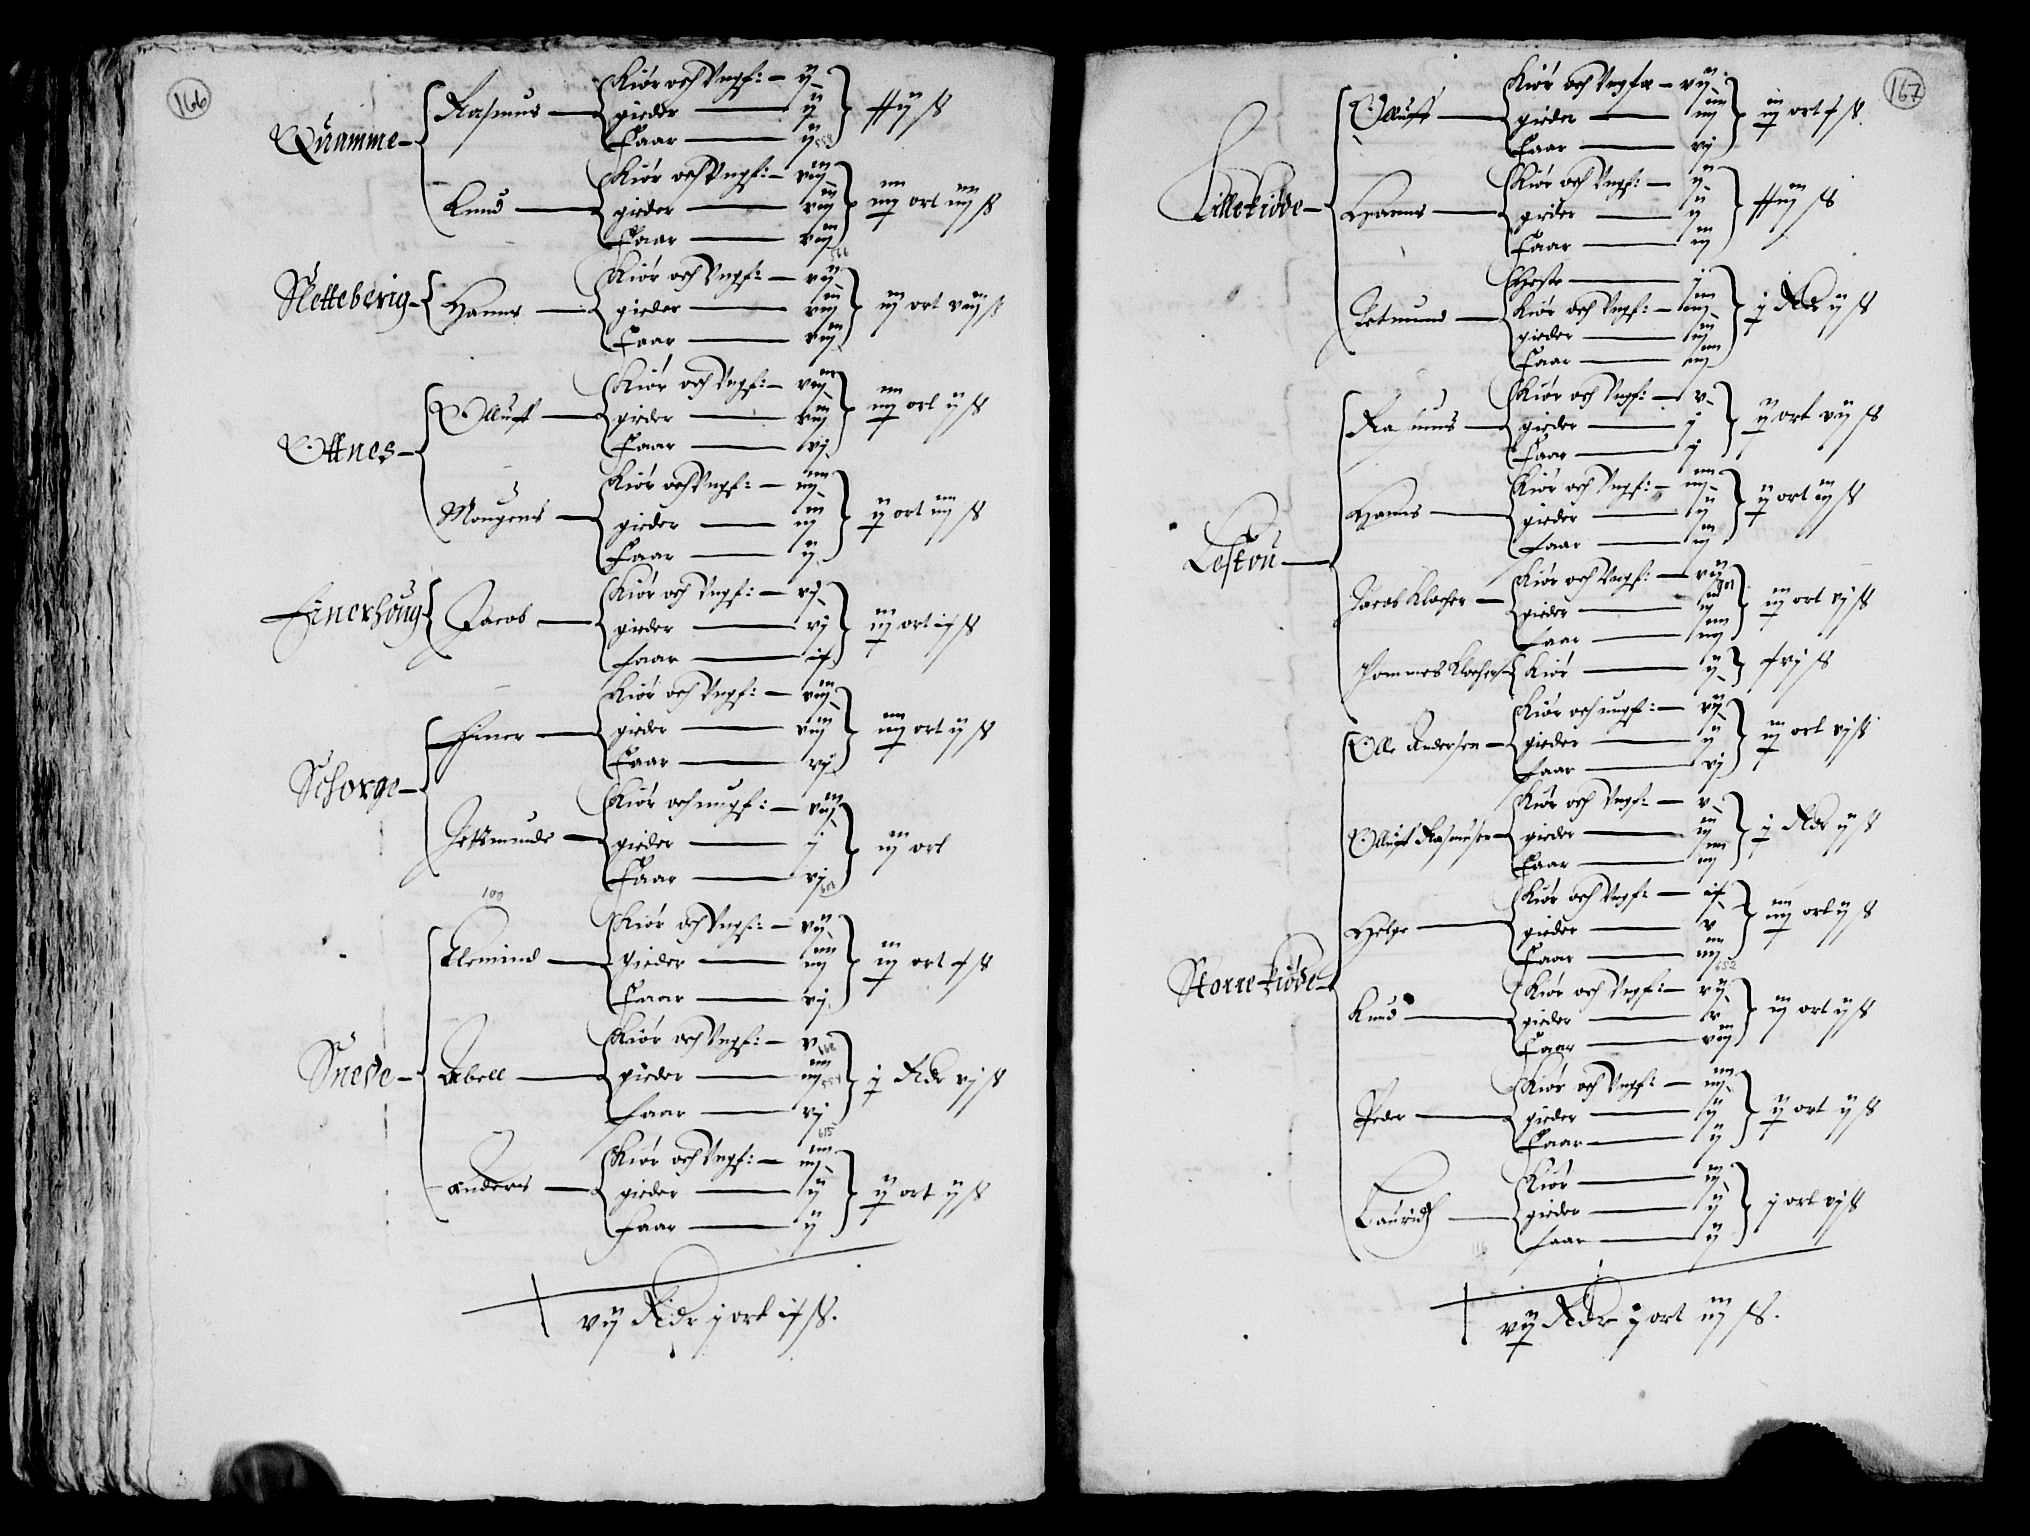 166
Quamme
Rasmus
Kiör och Vngf: — ij
gieder — ij
Faar — ij
ij ß
Knud
Kiör och Vngf: — viij
gieder — viij
Faar — viij
iiij ort iiij ß
Sletteberig
Hanns
Kiör och Vngf: — vij
gieder — viij
Faar — viij
iij ort viij ß
Ottnes
Olluff
Kiör och Vngf: — viij
gieder — viij
Faar — vj
iiij ort ij ß
Mougens
Kiör och Vngf: — iiij
gieder — iij
Faar — ij
ij ort iiij ß
Finerhoug
Jacob
Kiör och Vngf: — vj
gieder — vj
faar — ix
iij ort ij ß
Schorge
Finer
Kiör och Vngf: — viij
gieder — viij
Faar — vj
iiij ort ij ß
Jettmunde
Kiör och ungf: — viij
gieder — j
Faar — vj
iij ort
Sneve
100
Clemind
Kiör och Vngf: — vij
gieder — iiij
Faar — vj
iij ort ß
Abell
Kiör och Vngf: — v
gieder — iiij
faar — vj
j Rdr vj ß
615
anders
Kiör och Vngf: — iiij
gieder — ij
Faar — ij
ij ort ij ß
vij Rdr j ort ix ß.
167
Lillekidde
Olluff
Kiör och Vngfæ — vij
gieder — iiij
Faar — vj
iij ort ß
Hanns
Kiör och Vngf: — ij
gieder — ij
Faar — iij
iij ß
Jetmund
Heste — j
Kiör och Vngf: — iiij
gieder — iij
Faar — iiij
j Rdr ij ß
Leskou
Rasmus
Kiör och Vngf: — v
gieder — j
Faar — j
ij ort vij ß
Hanns
Kiör och Vngf: — iiij
gieder — ij
faar — iij
ij ort iij ß
Jacob Klocher
Kiör och Vngf: — vij
gieder — iij
faar — iiij
iij ort vj ß
Kiör — ij
vj ß
Storrekidde
Olle Andersen
Kiör och ungf: — vij
gieder — ij
faar — vj
iij ort vj ß
Olluff Rasmusen
Kiör och Vngf: — v
gieder — iij
Faar — iiij
j Rdr ij ß
Helge
Kiör och Vngf: — ix
gieder — v
Faar — iiij
iiij ort ij ß
652
Knud
Kiör och Vngf: — vij
gieder — v
Faar — viij
iij ort ij ß
Peder
Kiör och Vngf: — iiij
gieder — ij
Faar — ij
ij ort ij ß
Lauridß
Kiör — iij
gieder — ij
faar — ij
j ort vj ß
vij Rdr j ort iij ß.